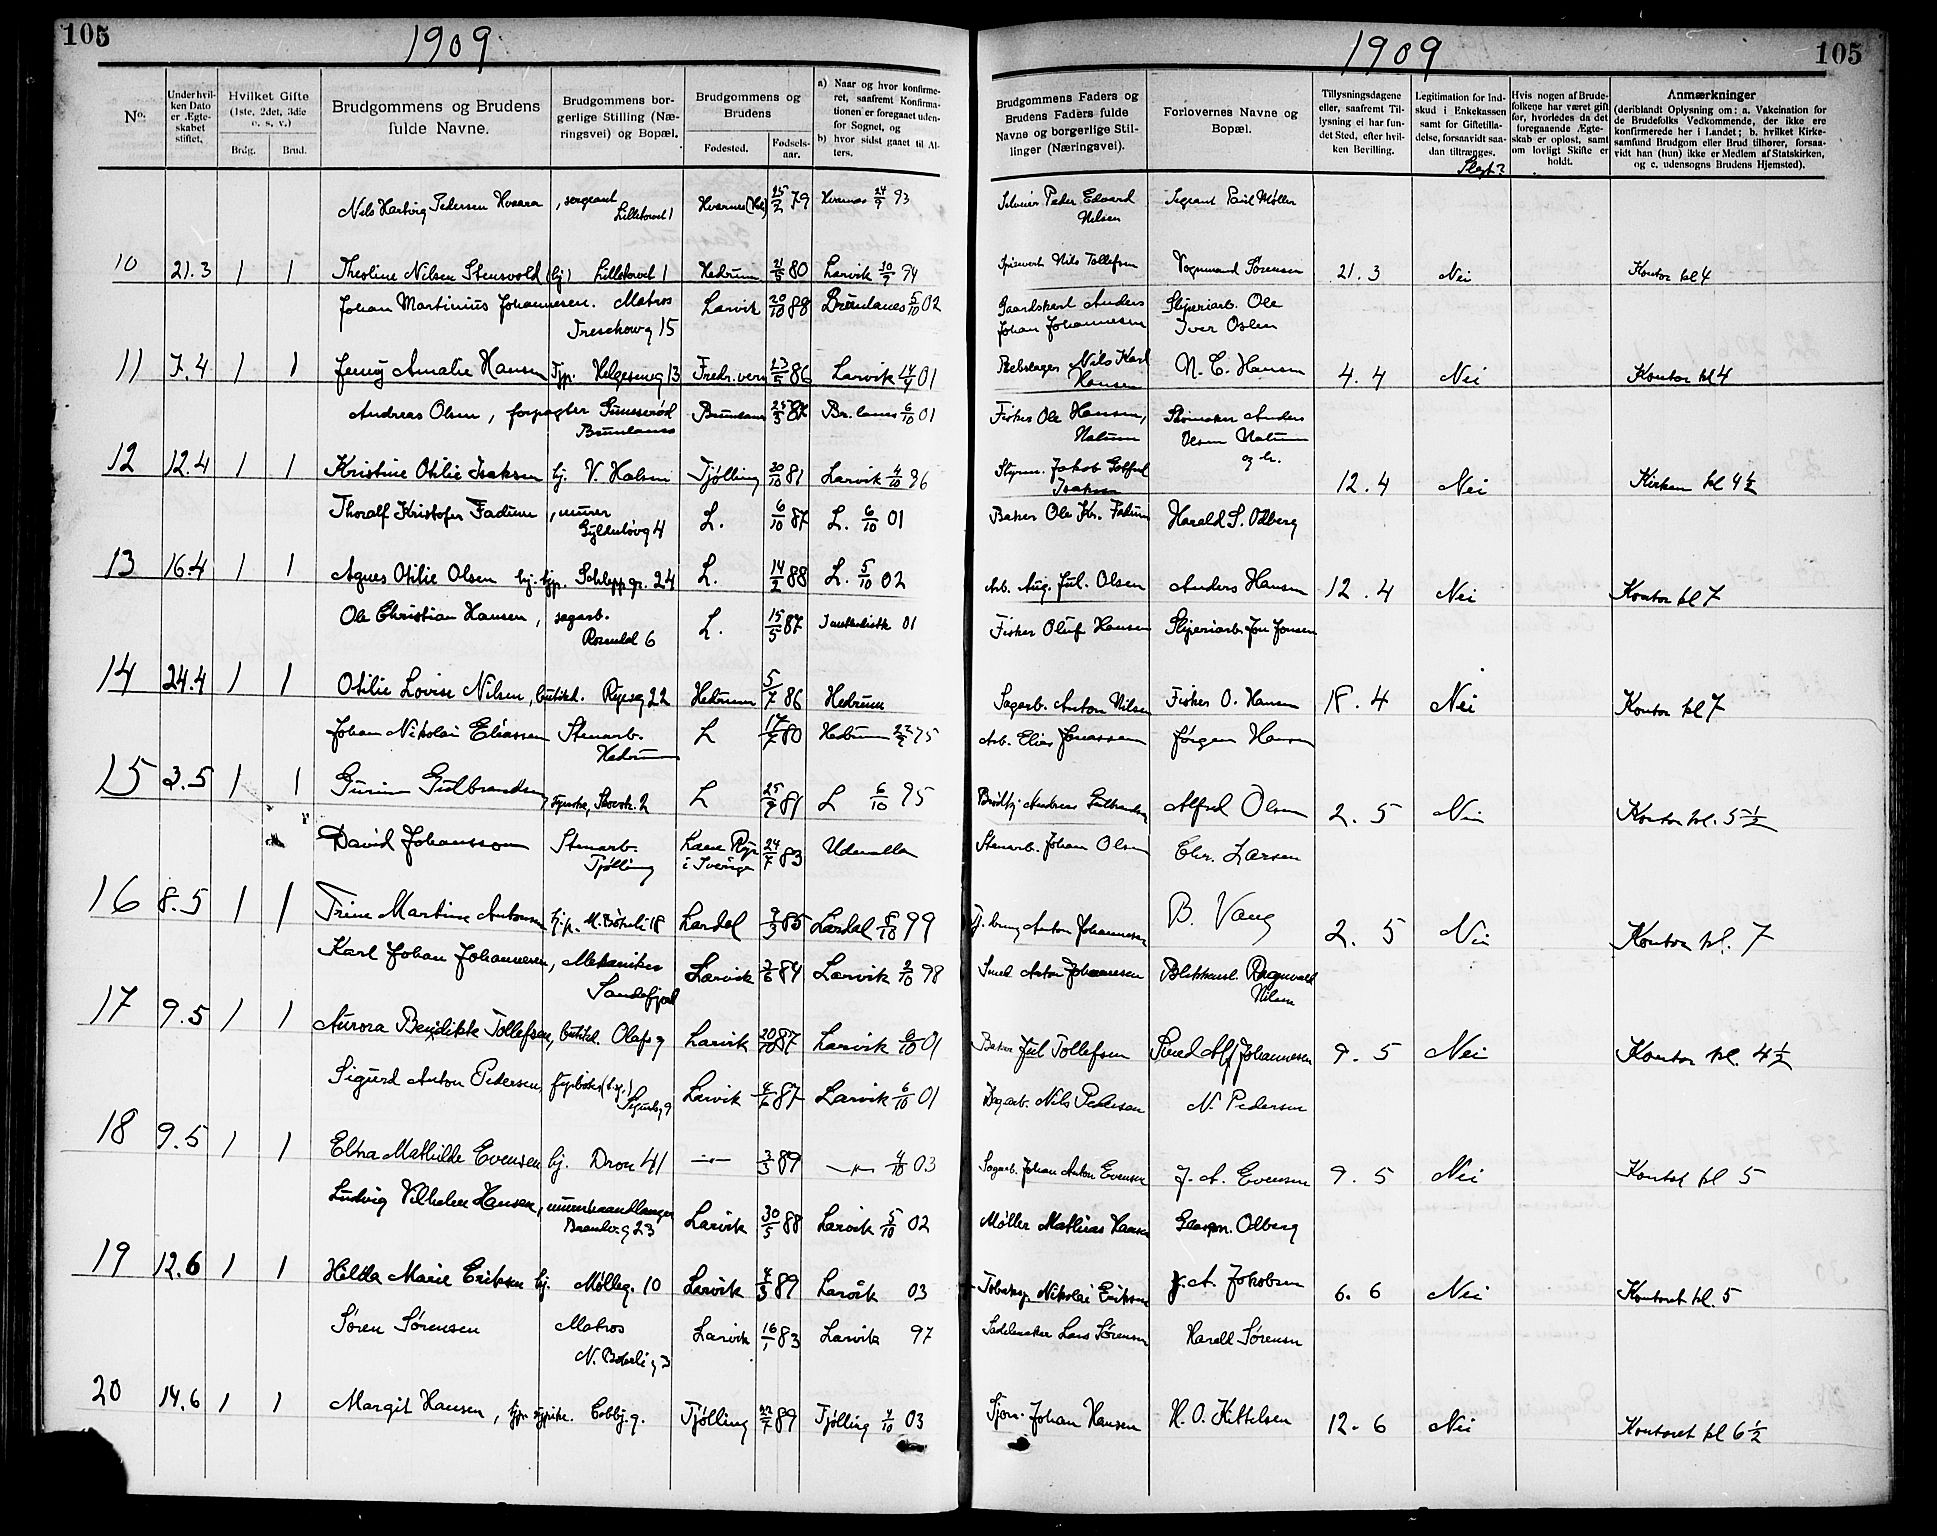 105
1909
1909
105
No.
Under hvilken Dato er Ægteskabet stiftet.
Hvilket Gifte (1ste, 2det, 3die o. s. v.)
Brdg.
Brud.
Brudgommens og Brudens fulde Navne.
Brudgommens borgerlige Stilling (Næringsvei) og Bopæl.
Brudgommens og Brudens
Fødested.
Fødselsaar.
a) Naar og hvor konfirmeret, saafremt Konfirmationen er foregaaet udenfor Sognet, og
b) hvor sidst gaaet til Alters.
Brudgommens Faders og Brudens Faders fulde Navne og borgerlige Stillinger (Næringsvei).
Forlovernes Navne og Bopæl.
Tillysningsdagene eller, saafremt Tillysning ei har fundet Sted, efter hvilken Bevilling.
Legitimation for Indskud i Enkekassen samt for Giftetilladelse, forsaavidt saadan tiltrænges.
Slegt?
Hvis nogen af Brudefolkene har været gift før, hvorledes da det foregaaende Ægteskab er opløst, samt om lovligt Skifte er holdt.
Anmærkninger
(deriblandt Oplysning om: a. Vakcination for de Brudefolks Vedkommende, der ikke ere konfirmerede her i Landet; b. hvilket Kirkesamfund Brudgom eller Brud tilhører, forsaavidt han (hun) ikke er Medlem af Statskirken, og c. udensogns Brudens Hjemsted).
Nils Hartvig Pedersen Hvaara, sergeant Lilletorvet 1 25/2 79 24/9 93 Peder Edvard Nilsen Sergeant Møller
10 21.3 1 1 Theoline Nilsen Stensvold (hj) Lilletorvet 1 Hedrum 21/5 80 Larvik 30/9 94 Nils Tollefsen Sørensen 21.3 Nei Kontor kl 4
Johan Martinius Johannesen. Matros Treschowg 15 Larvik 20/10 88 Brunlanes 5/10 02 Gaardskarl Anders Johan Johannesen Sliperiarb. Ole Iver Oslen
11 7.4 1 1 Jenny Amalie Hansen Tjp. Helgesensg 13 Fredr.vern 23/5 86 Larvik 14/4 01 Rebslager Nils Karl Hansen N. C. Hansen 4.4 Nei Kontor kl 4
Andreas Olsen, forpagter Brunlanes Brunlanes 25/3 87 Br.lanes 6/10 01 Fisker Ole Hansen, Nalum Anders Olsen Nalum
12 12.4 1 1 Kristine Otilie Isaksen hj. V. Halsen Tjølling 20/10 81 Larvik 4/10 96 Styrm. Jakob Isaksen 12.4 Nei Kirken kl 4½
Thoralf Kristofer Fadum, murer Gyldenløvg 4 L. 6/10 87 L. 6/10 01 Baker Ole Kr. Fadum Harald S. Odberg
13 16.4 1 1 Agnes Otilie Olsen hj. hjp. Schleppgr. 24 L. 14/2 88 L. 5/10 02 Arb. Aug. Jul. Olsen Anders Hansen 12.4 Nei Kontor kl 7
Ole Christian Hansen, sagarb. Rosendal 6 L. 15/5 87 01 Fisker Oluf Hansen Sliperiarb. Jon Jonsen
14 24.4 1 1 Otilie Lovise Nilsen, butikd. Ryesg 22 Hedrum 5/7 86 Hedrum Sagarb. Anton Nilsen Fisker O. Hansen 18.4 Nei Kontor kl 7
Johan Nikolai Eliassen Stenarb. Hedrum L 17/7 80 Hedrum 22/9 95 Arb. Elias Jonassen Jørgen Hansen
15 3.5 1 1 Gulbrandsen, syerske, 2 L 25/9 81 L 6/10 95 Andreas Gulbrandsen Alfred Olsen 2.5 Nei Kontor kl. 5½
David Johansson Stenarb. Tjølling i Sverige 24/7 83 Udevalla Stenarb. Johan Olsen Chr. Larsen
16 8.5 1 1 Trine Martine Antonsen hjp. 18 Lardal 9/3 85 Lardal 8/10 99 Anton Johannesen B. Vang 2.5 Nei Kontor kl. 7
Karl Johan Johannesen, Mekaniker Sandefjord Larvik 3/6 84 Larvik 2/10 98 Smed Anton Johannesen Ragnvald Nilsen
17 9.5 1 1 Aurora Bendikte Tollefsen, butikd. Olafsg Larvik 20/10 87 Larvik 6/10 01 Baker Jul Tollefsen Smed Alf Johannesen 9.5 Nei Kontor kl. 4½
Sigurd Anton Pedersen, fyrbøter Larvik 4/6 87 Larvik 6/10 01 Nils Pedersen N. Pedersen
18 9.5 1 1 Elna Mathilde Evensen hj. Dron 41 —"— 3/3 89 —"— 4/10 03 Sagarb. Johan Anton Evensen J. A. Evensen 9.5 Nei Kontor kl 5
Ludvig Vilhelm Hansen, murerhaandlanger 23 Larvik 30/5 88 Larvik 5/10 02 Møller Mathias Hansen Odberg
19 12.6 1 1 Hilda Marie Eriksen hj. Mølleg. 10 Larvik 4/3 89 Larvik 03 Nikolai Eriksen J. A. Jakobsen 6.6 Nei Kontoret kl. 5
Søren Sørensen Matros 3 Larvik 16/1 83 Larvik 97 Sadelmaker Lars Sørensen Harald Sørensen
20 14.6 1 1 Margit Hansen, Tjølling 22/7 89 Tjølling 4/10 03 Johan Hansen H. O. Kittelsen 12.6 Nei Kontoret kl 6½